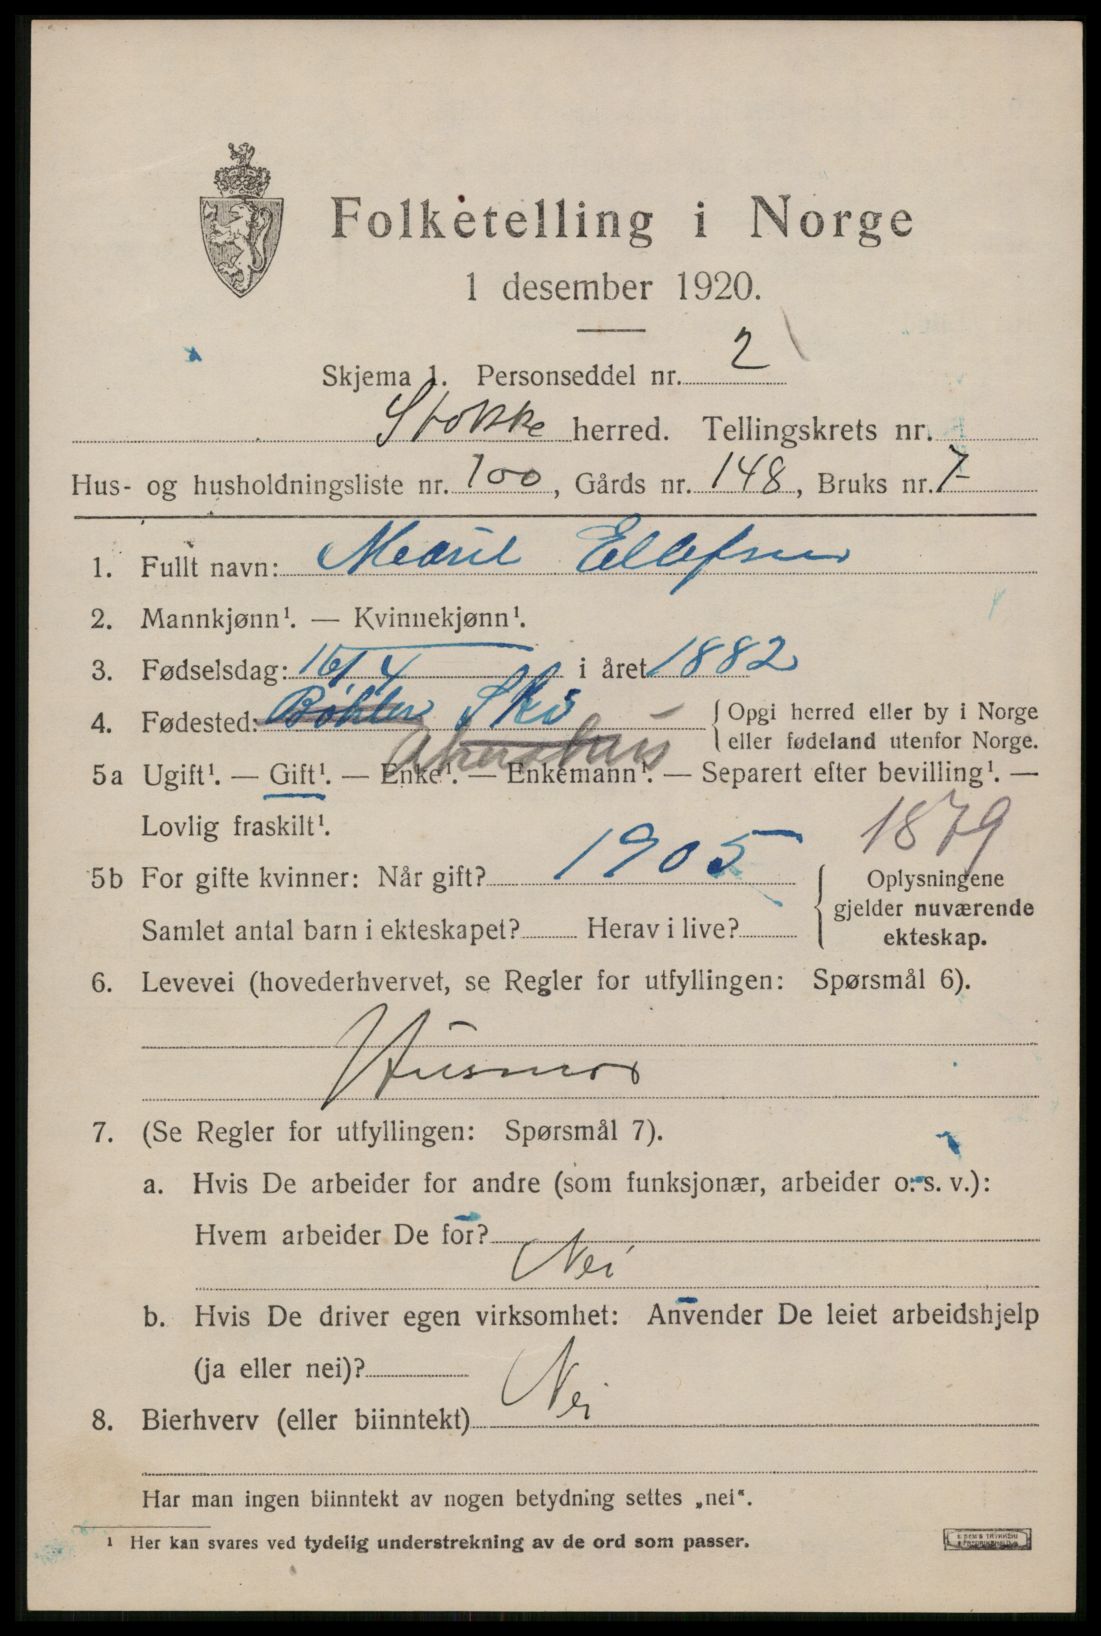 Folketelling i Norge
1 desember 1920.
Skjema 1. Personseddel nr. 2
Stokke herred. Tellingskrets nr.
Hus- og husholdningsliste nr. 100, Gårds nr. 148, Bruks nr. 7
1. Fullt navn: Ellefsen
2. Mannkjønn¹. — Kvinnekjønn¹.
3. Fødselsdag: 16/4 i året 1882
4. Fødested: Ski { Opgi herred eller by i Norge
eller fødeland utenfor Norge.
Akershus
5a Ugift¹. — Gift¹. — Enke¹. — Enkemann¹. — Separert efter bevilling¹. —
Lovlig fraskilt¹.
1879
5b For gifte kvinner: Når gift? 1905 { Oplysningene
gjelder nuværende
ekteskap.
Samlet antal barn i ekteskapet? Herav i live?
6. Levevei (hovederhvervet, se Regler for utfyllingen: Spørsmål 6).
Husmor
7. (Se Regler for utfyllingen: Spørsmål 7).
a. Hvis De arbeider for andre (som funksjonær, arbeider o. s. v.):
Hvem arbeider De for?
Nei
b. Hvis De driver egen virksomhet: Anvender De leiet arbeidshjelp
(ja eller nei)?
8. Bierhverv (eller biinntekt) Nei
Har man ingen biinntekt av nogen betydning settes „nei“.
¹ Her kan svares ved tydelig understrekning av de ord som passer.